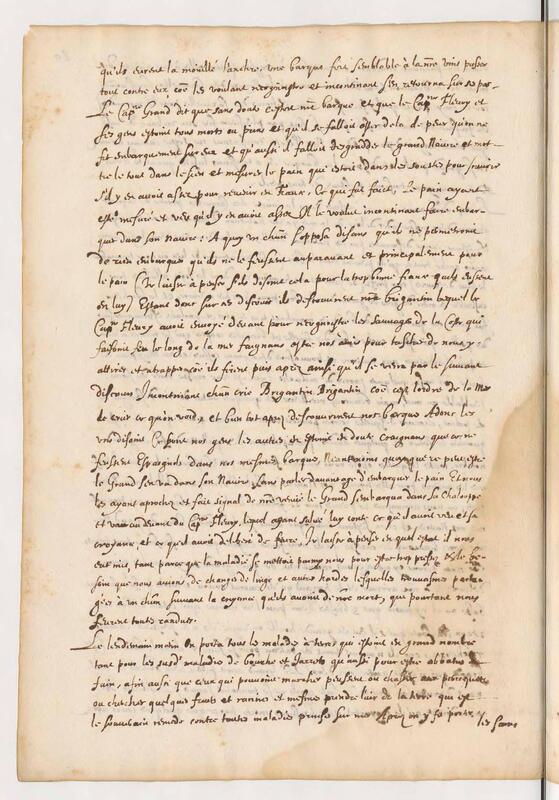 qu'ils eurent la moictié l'anchre, une barque fort semblable à la nre vint passer
tout contre eux coe les voulant recognoistre et incontinant s'en retourna sur ses pas.
Le Capne Grand dit que sans doute c'estoit nre barque et que le Capne Fleury et
ses gens estoint tous morts ou prins et qu'il se falloit oster de la de peur qu'on ne
fit embarquement sur eux et qu'aussi il falloit desgarnir le grand Navire et met-
tre le tout dans le sien et mesurer le pain que estoit dans les soultes pour scavoir
s'il y en avoit assez pour revenir en France, Ce qui fut faict, Le pain ayant
esté mesuré et veu qu'il y en avoit assez Il le voulut incontinant faire embar-
quer dans son Navire: A quoy un chun s'opposa disans qu'ils ne permetroint
de rien embarquer qu'ils ne le feussent auparavant et principalement pour
le pain (Je laisse à penser s'ils disoint cela pour la trop bonne fiance qu'ils eussent
en luy) Estant donc sur ces discours ils descouvrirent nre brigantin lequel le
Capne Fleury avoit envoyé devant pour recognoistre les sauvages de la coste qui
faisoint feu le long de la mer faignans estre nos amis pour tascher de nous y
attirer et attrapper coe ils firent puis apres ainsi qu'il se verra par le suivant
discours Incontinant chun crie Brigantin Brigantin coe c'est l'ordre de la Mer
de crier ce qu'on void, et bien tot apres descouvrirent nos barque Adonc les
uns disoint Ce sont nos gens les autres en estoint en doute craignans que ce ne
feussent Espagnols dans nos mesmes barque, Neantmoins quoy que ce peut estre
le Grand s'en va dans son Navire sans parler davantage d'embarquer le pain Et nous
les ayant aprochez et fait signal de nre venue le Grand s'embarqua dans sa Chaloupe
et vint au devant du Capne Fleury, lequel ayant salué luy conte ce qu'il avoit veu et sa
croyance et ce qu'il avoit deliberé de faire, Je laisse à penser en quel estat il nous
eut mis, tant parce que la maladie se mettoit parmy nous pour estre trop pressez & le be-
soin que nous avions de changer de linge et autres hardes lesquelles trouvasmes parta-
gées à un chun suivant la croyance qu'ils avoint de nre mort, qui pourtant nous
feurent toutes randues.
Le lendemain matin On porta tous les malades à terre qui estoint en grand nombre
tant pour les susd maladies de bouche et Jarrets qu'aussi pour estre abbatus de
fain, afin aussi que ceux qui pouvoint marcher peussent ou chasser aux perroquets
ou chercher quelque fruits et racines et mesme prendre l'air de la terre qui est
le souverain remede contre toutes maladies prinses sur mer Apres on y fit porter
les